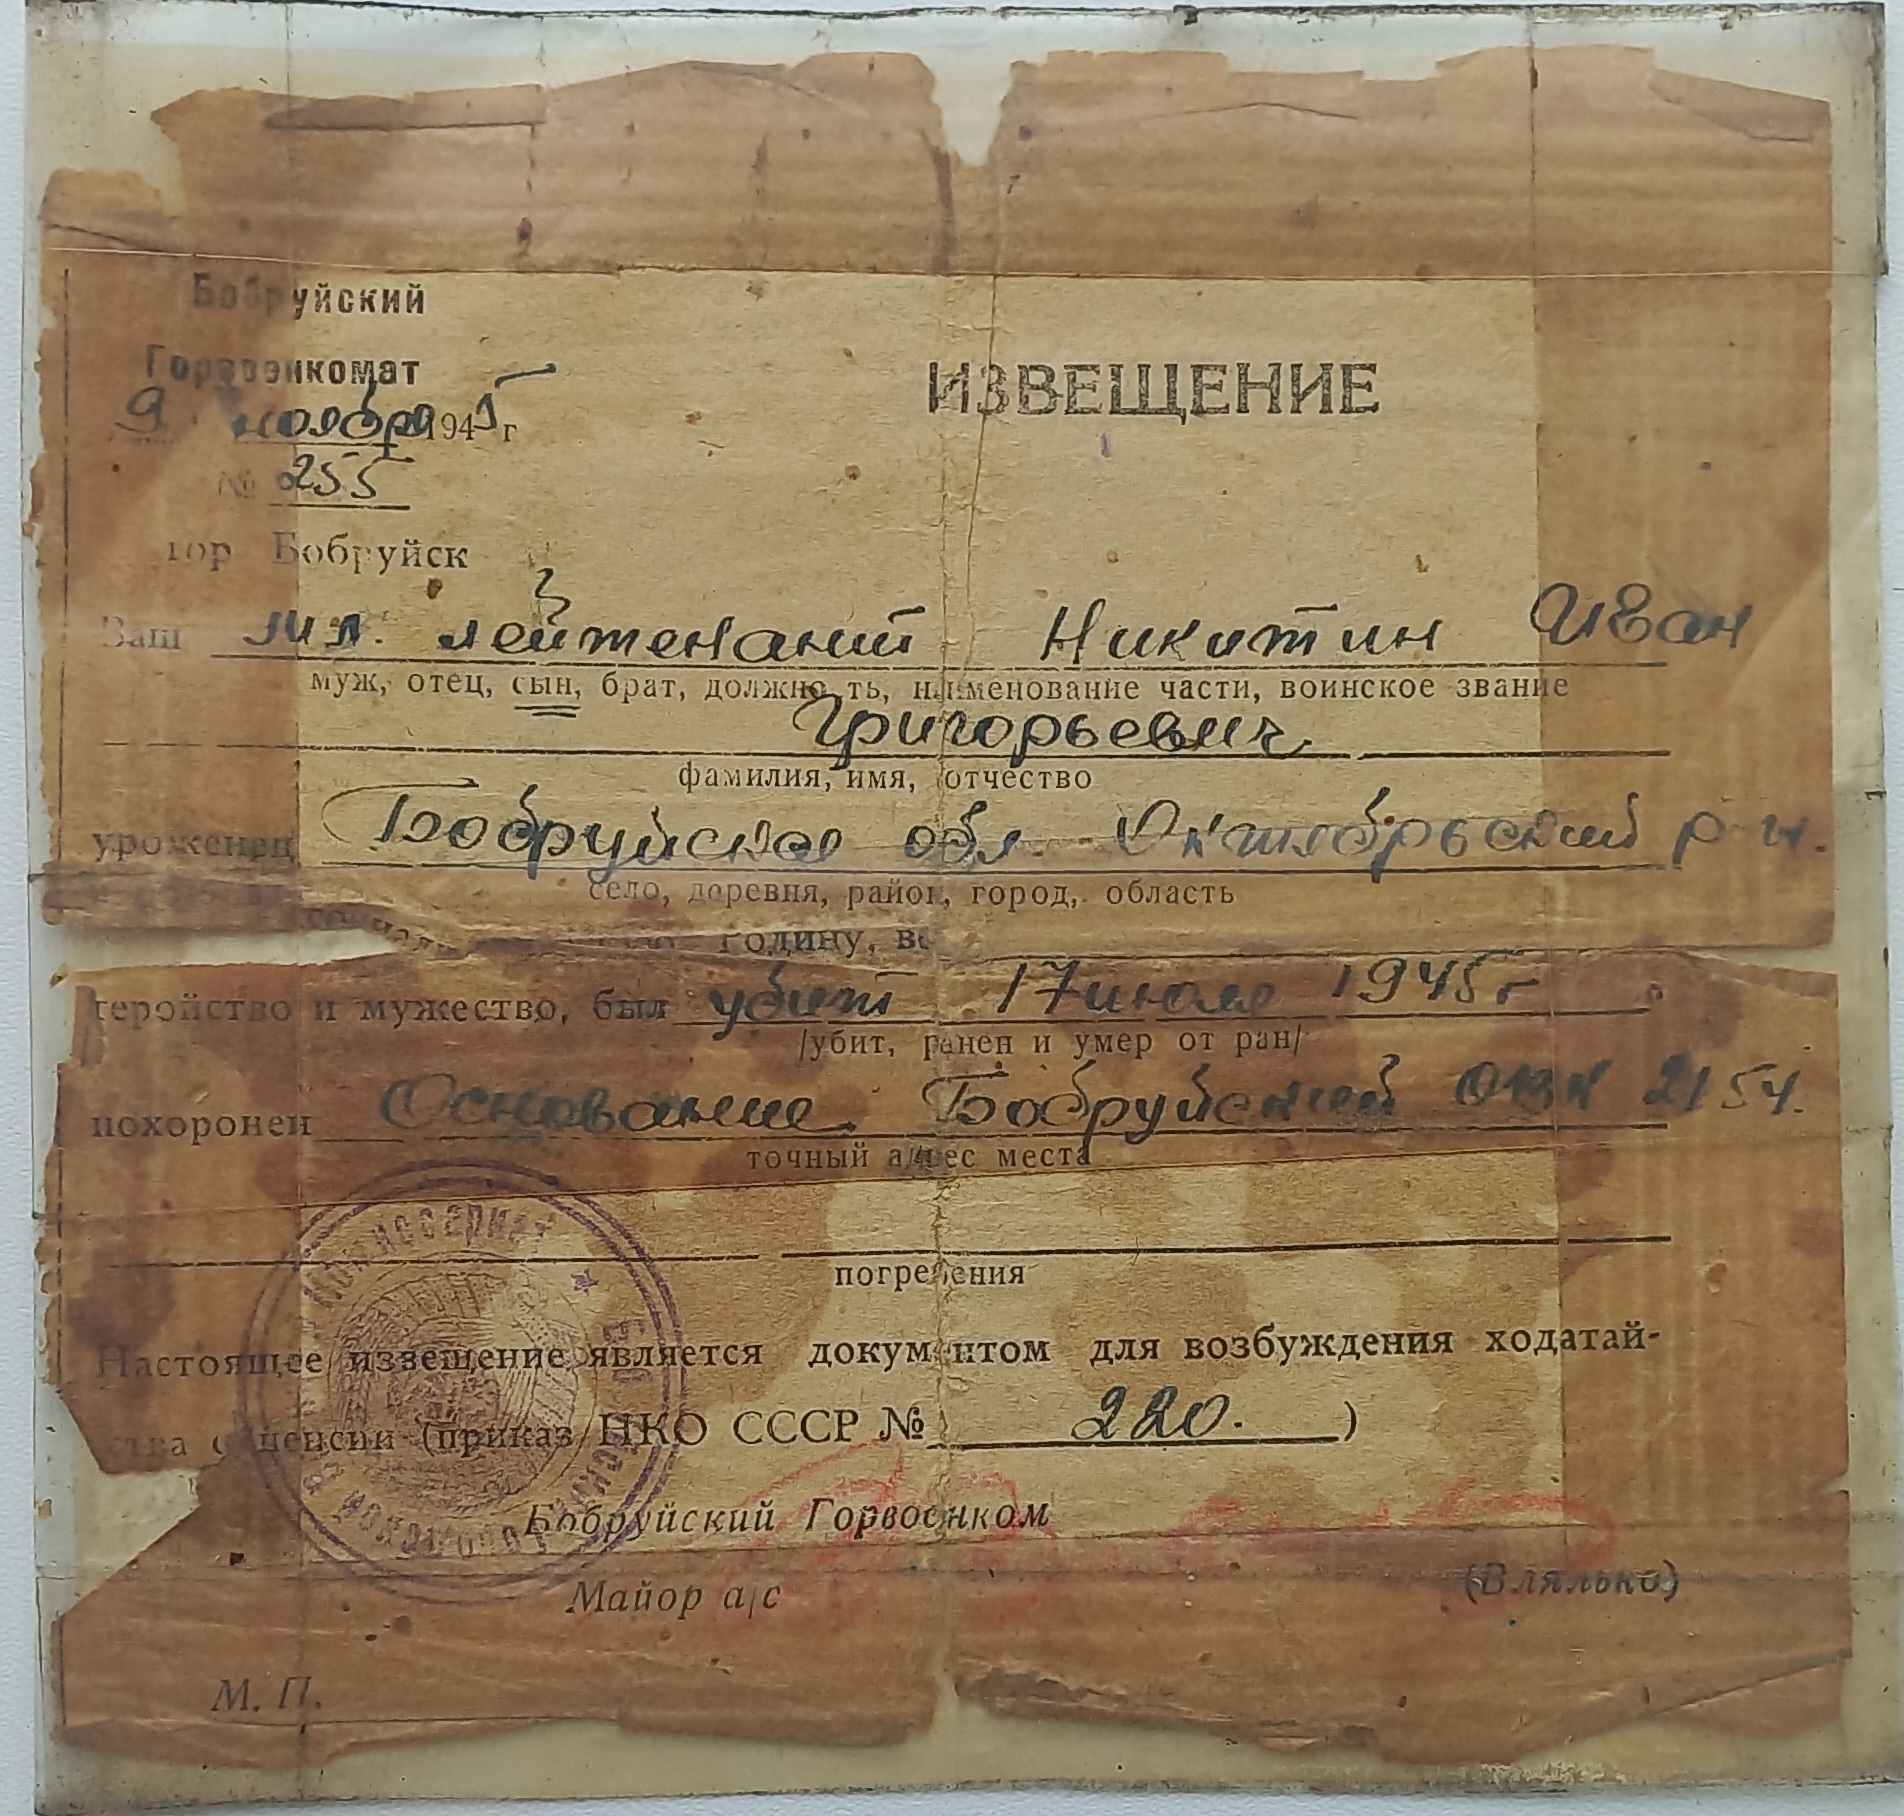 Бобруйский
Горвоенкомат
9 ноября 1945 г
№ 255
ИЗВЕЩЕНИЕ
гор Бобруйск
Ваш мл. лейтенант Никитин Иван
муж, отец, сын, брат, должность, наименование части, воинское звание
Григорьевич
фамилия, имя, отчество
уроженец Бобруйская обл. Октябрьский р-н.
село, деревня, район, город, область
Родину,
геройство и мужество, был убит 17 июля 1945 г
/убит, ранен и умер от ран/
похоронен Основание Бобруйский ОВК
точный адрес места
погребения
Настоящее извещение является документом для возбуждения ходатай-
ства о пенсии (приказ НКО СССР № 220. )
Бобруйский Горвоенком
Майор а/с (Влялько)
М. П.